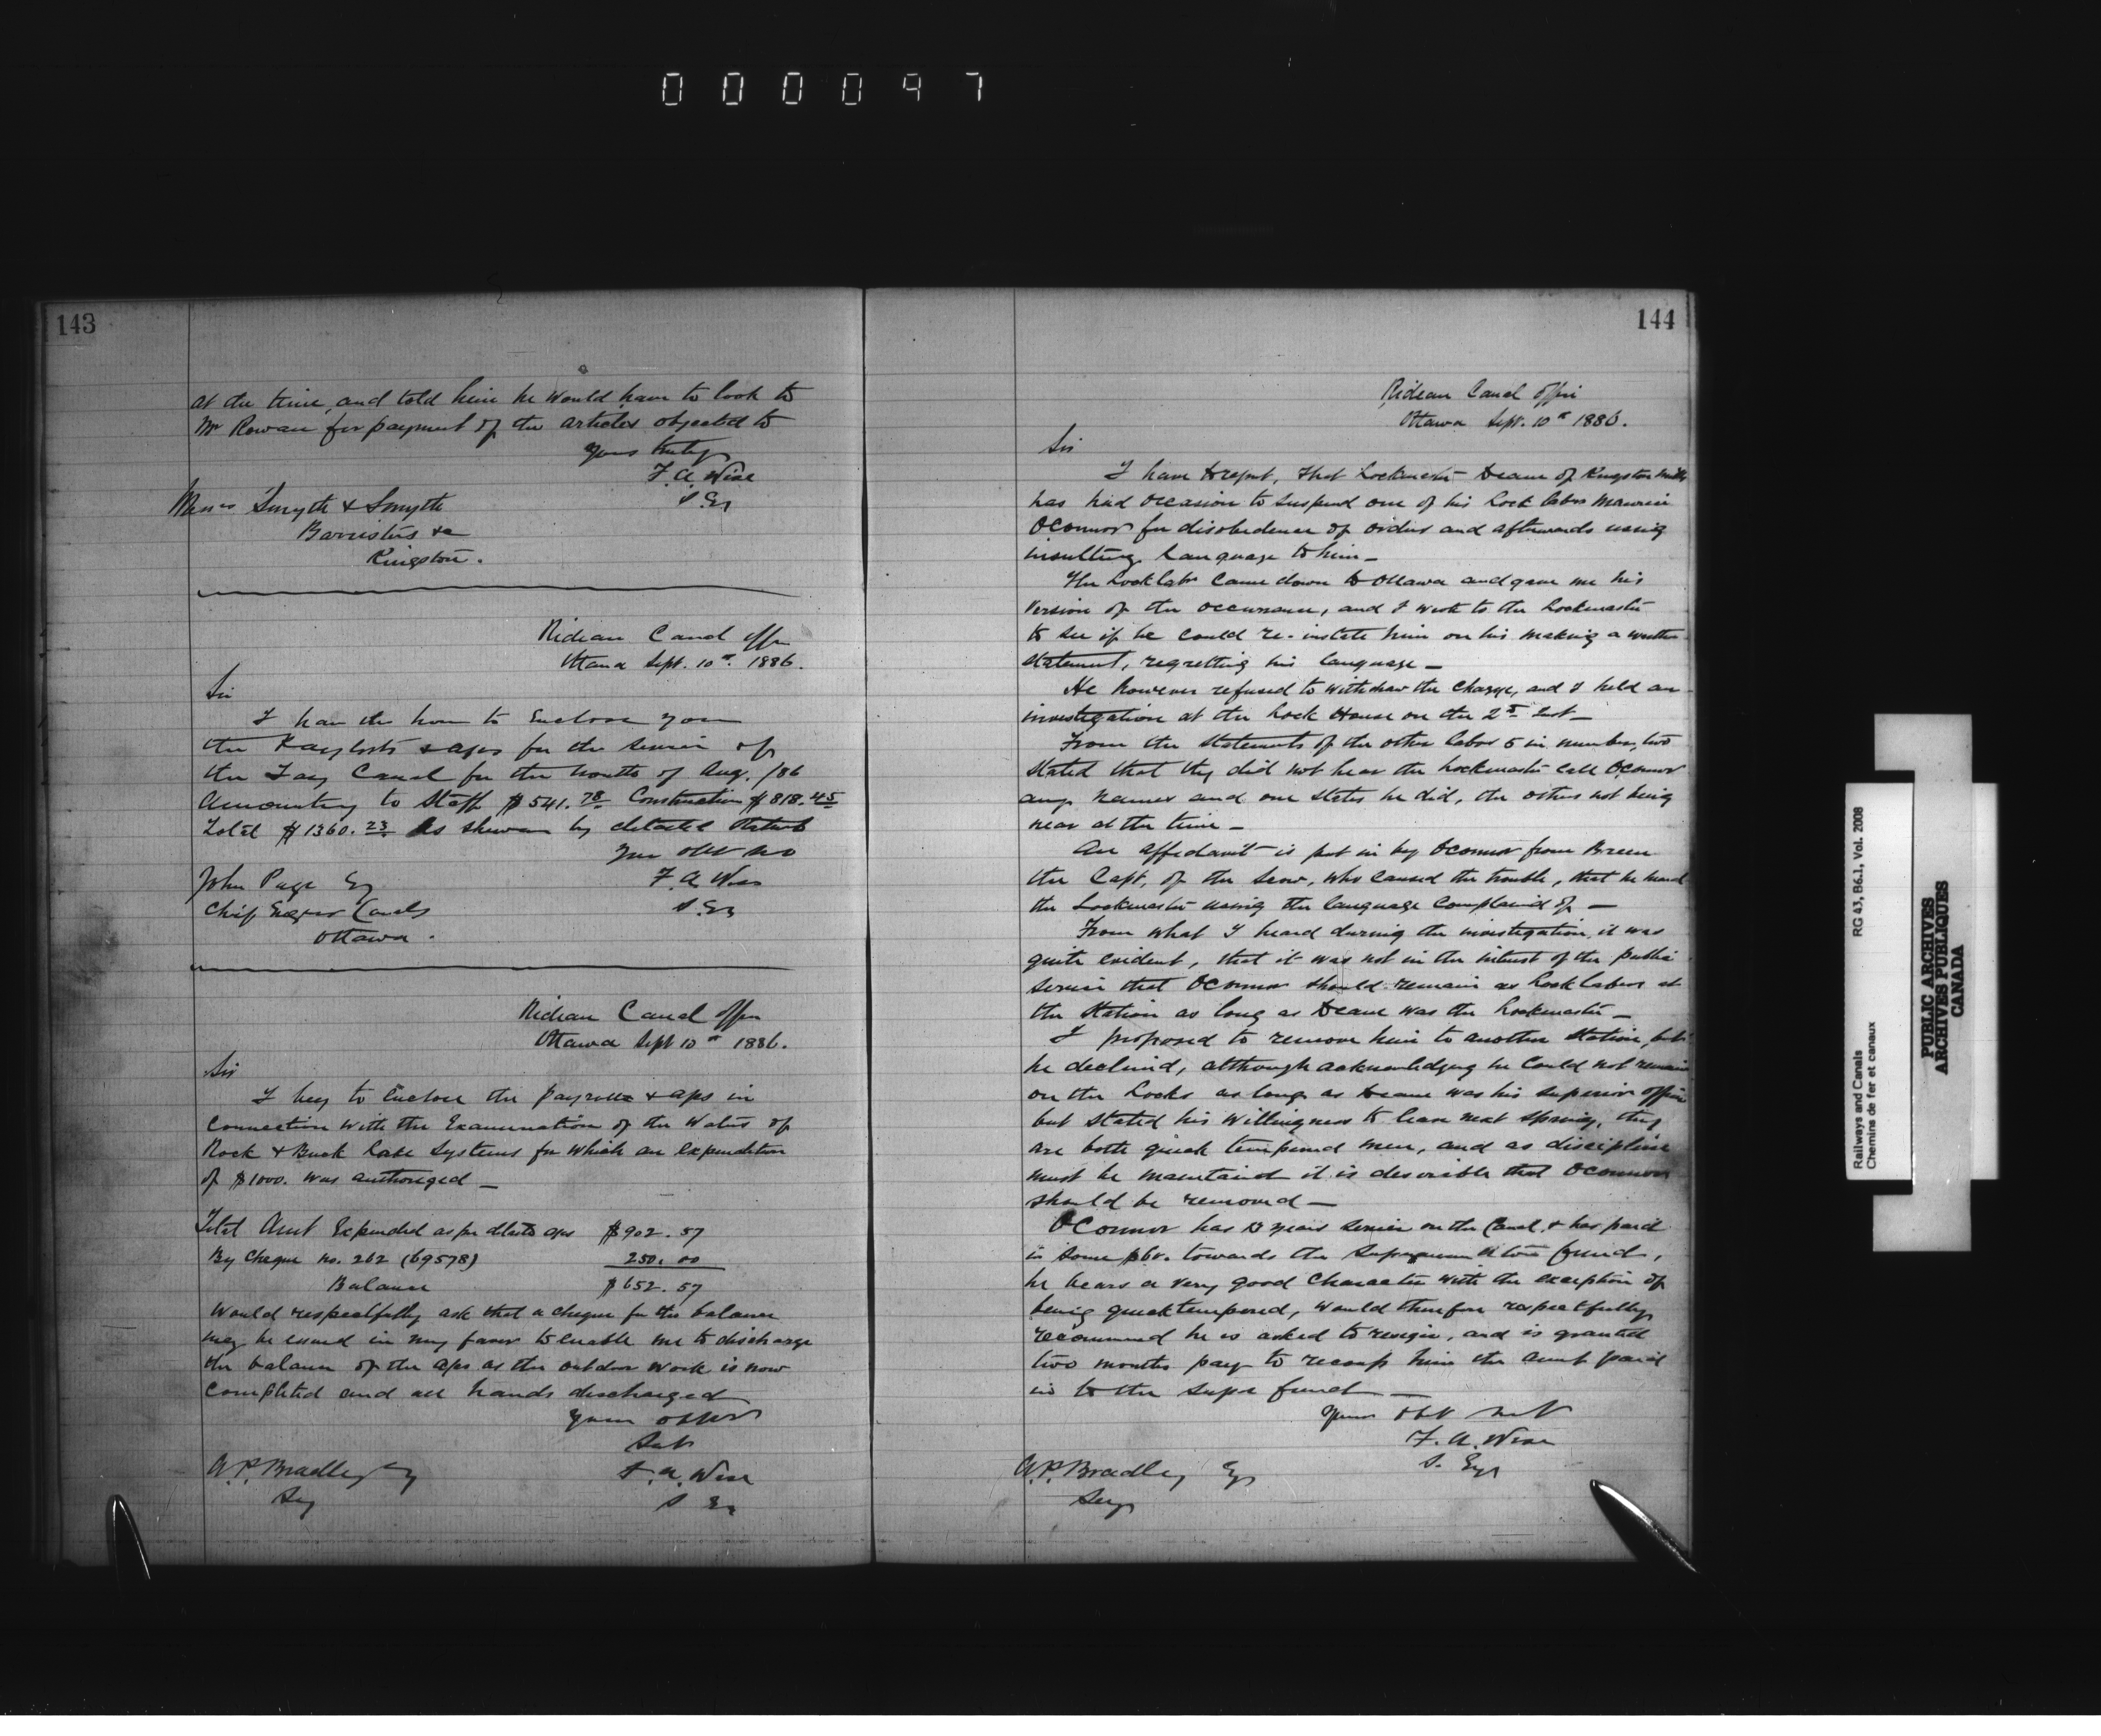 000097
143
at the time, and told him he would have to look to
Mr Rowan for payment of the articles objected to
Yours truly
F. A. Wise
S. Eg
Messrs Smyth & Smyth
Barristers &c
Kingston.
Rideau Canal Offi
Ottawa Sept. 10th 1886.
Sir
I have the honor to Enclose you
the Paylists & aps for the service of
the Tay Canal for the month of Aug. /86
Amounting to Staff $541.78 Construction $818.45
Total $1360.23 As shewn by detailed
Your obt
John Page Eq
F. A. Wise
Chief Engr Canals
S. Eg
Ottawa.
Rideau Canal Offi
Ottawa Sept 10th 1886.
Sir
I beg to Enclose the Payrolls & aps in
Connection with the Examination of the Waters of
Rock & Buck Lake Systems for which an expenditure
of $1000. was authorized –
Total Amt Expended as per detailed aps $902.57
By Cheque no. 262 (69578) 250.00
Balance $652.57
Would respectfully ask that a cheque for the balance
may be issued in my favor to enable me to discharge
the balance of the aps as the outdoor work is now
completed and all hands discharged
Your
A. P. Bradley Eq
F. A. Wise
Secy
S Eg
144
Rideau Canal Offi
Ottawa Sept. 10th 1886.
Sir
I have to report, that Lockmaster Deane of Kingston Mills
has had occasion to suspend one of his Lock labrs Maurice
OConnor for disobedience of orders and afterwards using
insulting language to him –
The Lock labr came down to Ottawa and gave me his
version of the occurrence, and I wrote to the Lockmaster
to see if he could re-instate him on his making a written
statement, regretting his language –
He however refused to withdraw the charge, and I held an
investigation at the Lock House on the 2nd Inst –
From the statements of the other labrs 5 in number, two
stated that they did not hear the Lockmaster call OConnor
any names and one states he did, the others not being
near at the time –
An affidavit is put in by OConnor from Breen
the Capt. of the Scow, who caused the trouble, that he heard
the Lockmaster using the language complained of –
From what I heard during the investigation, it was
quite evident, that it was not in the interest of the public
service that OConnor should remain as Lock labour at
the Station as long as Deane was the Lockmaster –
I proposed to remove him to another station, but
he declined, although acknowledging he could not remain
on the Locks as long as Deane was his superior officer
but stated his willingness to leave next spring, they
are both quick tempered men, and as discipline
must be maintained it is desirable that OConnor
should be removed –
OConnor has years service on the Canal & has paid
in some towards the Superannuation fund,
he bears a very good character with the exception of
being quick tempered, would therefore respectfully
recommend he is asked to resign, and is granted
two months pay to recoup him the amt paid
in to the Supr fund –
Your Obt
F. A. Wise
A. P. Bradley Eq
S. Eg
Secy
Railways and Canals RG 43, B6.1, Vol. 2008
Chemins de fer et canaux
PUBLIC ARCHIVES
ARCHIVES PUBLIQUES
CANADA